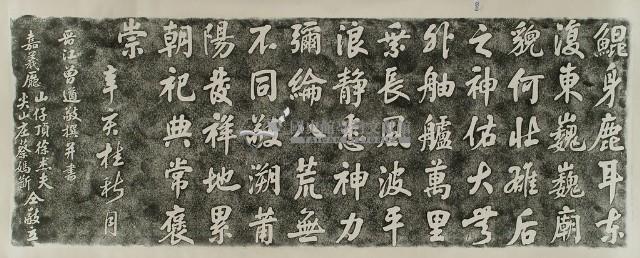 鯤身鹿耳東
復東巍巍廟
貌何壯雄后
之神佑大無
外舳艫萬里
乘長風波平
浪静慿神力
彌綸八荒無
不同敬溯莆
陽發祥地累
朝祀典常褒
崇
辛亥桂秋月
晋江曾遒敬撰并書
嘉義廳
山仔頂徐
尖山庄蔡媽
仝敬立